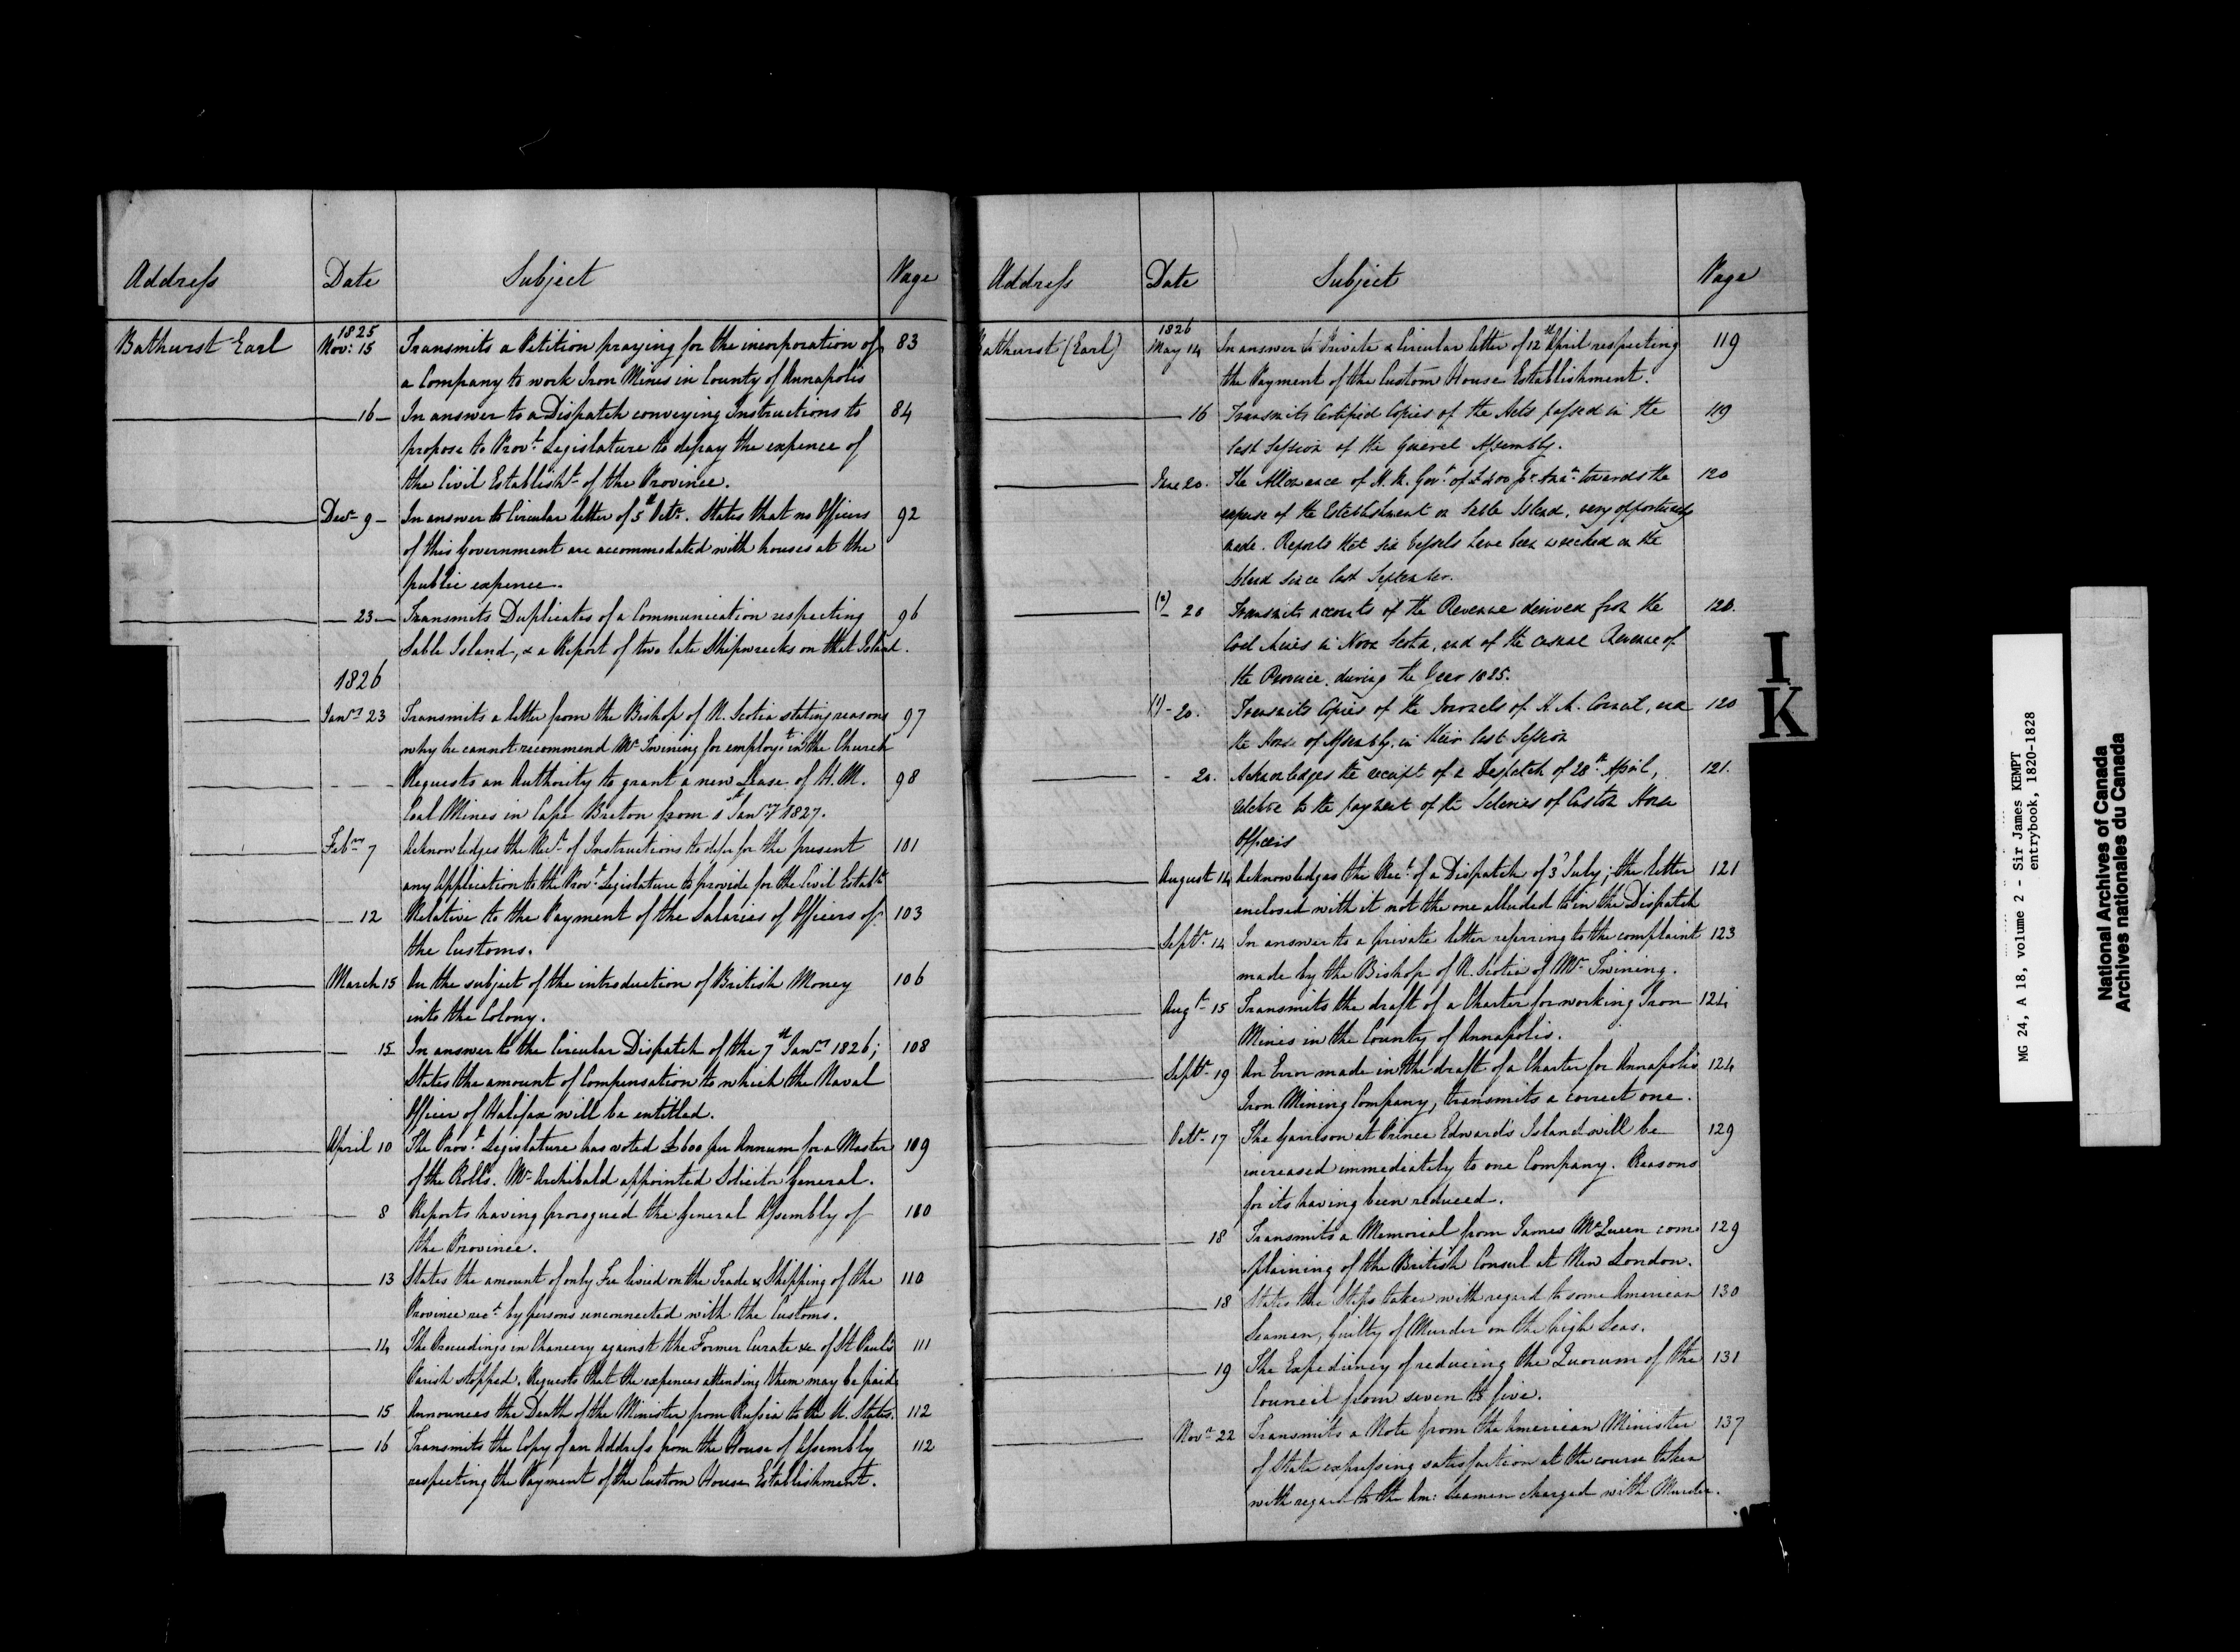 Address Date Subject Page
Bathurst Earl 1825 Nov: 15 Transmits a Petition praying for the incorporation of 83
a Company to work Iron Mines in County of Annapolis
— 16 — In answer to a Dispatch conveying Instructions to 84
propose to Prov.l Legislature to defray the expence of
the Civil Establisht of the Province.
Decr 9 — In answer to Circular letter of 5th Octr. States that no Officers 92
of this Government are accommodated with houses at the
public expence.
— 23 — Transmits Duplicates of a Communication respecting 96
Sable Island, & a Report of two late Shipwrecks on that Island.
1826
Jany 23 Transmits a letter from the Bishop of N. Scotia stating reasons 97
why he cannot recommend Mr Twining for employt in the Church
- - - Requests an Authority to grant a new Lease of H. M. 98
Coal Mines in Cape Breton from 1st Jany 1827.
Febry 7 Acknowledges the Rect of Instructions to defer for the present 101
any Application to the Prov.l Legislature to provide for the Civil Establt
— 12 Relative to the Payment of the Salaries of Officers of 103
the Customs.
March 15 On the subject of the introduction of British Money 106
into the Colony.
— 15 In answer to the Circular Dispatch of the 7th Jany 1826; 108
States the amount of Compensation to which the Naval
Officer of Halifax will be entitled.
April 10 The Prov.l Legislature has voted £600 per Annum for a Master 109
of the Rolls. Mr Archibald appointed Solicitor General.
— 8 Reports having prorogued the General Assembly of 110
the Province.
— 13 States the amount of only Fee levied on the Trade & Shipping of the 110
Province rect by persons unconnected with the Customs.
— 14 The Proceedings in Chancery against the Former Curate &c of St Paul's 111
Parish stopped. Requests that the expences attending them may be paid.
— 15 Announces the Death of the Minister from Russia to the U. States. 112
— 16 Transmits the Copy of an Address from the House of Assembly 112
respecting the Payment of the Custom House Establishment.
Address Date Subject Page
Bathurst (Earl) 1826 May 14 In answer to Private & Circular letter of 12th April respecting 119
the Payment of the Custom House Establishment.
— 16 Transmits Certified Copies of the Acts passed in the 119
last Session of the General Assembly.
June 20. The Allowance of H. M. Govt of £400 pr Ann. towards the 120
expense of the Establishment on Sable Island, very opportunely
made. Reports that six Vessels have been wrecked on the
Island since last September.
(2) - 20 Transmits accounts of the Revenue derived from the 120.
Coal Mines in Nova Scotia, and of the casual Revenue of
the Province, during the Year 1825.
(1) - 20. Transmits Copies of the Journals of H. M. Council, and 120
the House of Assembly, in their last Session
- 20. Acknowledges the receipt of a Despatch of 28th April, 121.
relative to the payment of the Salaries of Custom House
Officers
August 14 Acknowledges the Rect of a Dispatch of 3d July; the letter 121
enclosed with it not the one alluded to in the Dispatch
Septr 14 In answer to a private letter referring to the complaint 123
made by the Bishop of N. Scotia of Mr Twining.
Augt 15 Transmits the draft of a Charter for working Iron 124
Mines in the County of Annapolis.
Septr 19 An Error made in the draft of a Charter for Annapolis 124
Iron Mining Company, transmits a correct one.
Octr 17 The Garrison at Prince Edward's Island will be 129
increased immediately to one Company. Reasons
for its having been reduced.
— 18 Transmits a Memorial from James McQueen com 129
plaining of the British Consul at New London.
— 18 States the Steps taken with regard to some American 130
Seamen, guilty of Murder on the high Seas.
— 19 The Expediency of reducing the Quorum of the 131
Council from seven to five.
Novr 22 Transmits a Note from the American Minister 137
of State expressing satisfaction at the course taken
with regard to the Am: Seamen charged with Murder.
I
K
MG 24, A 18, volume 2 - Sir James KEMPT
entrybook, 1820-1828
National Archives of Canada
Archives nationales du Canada